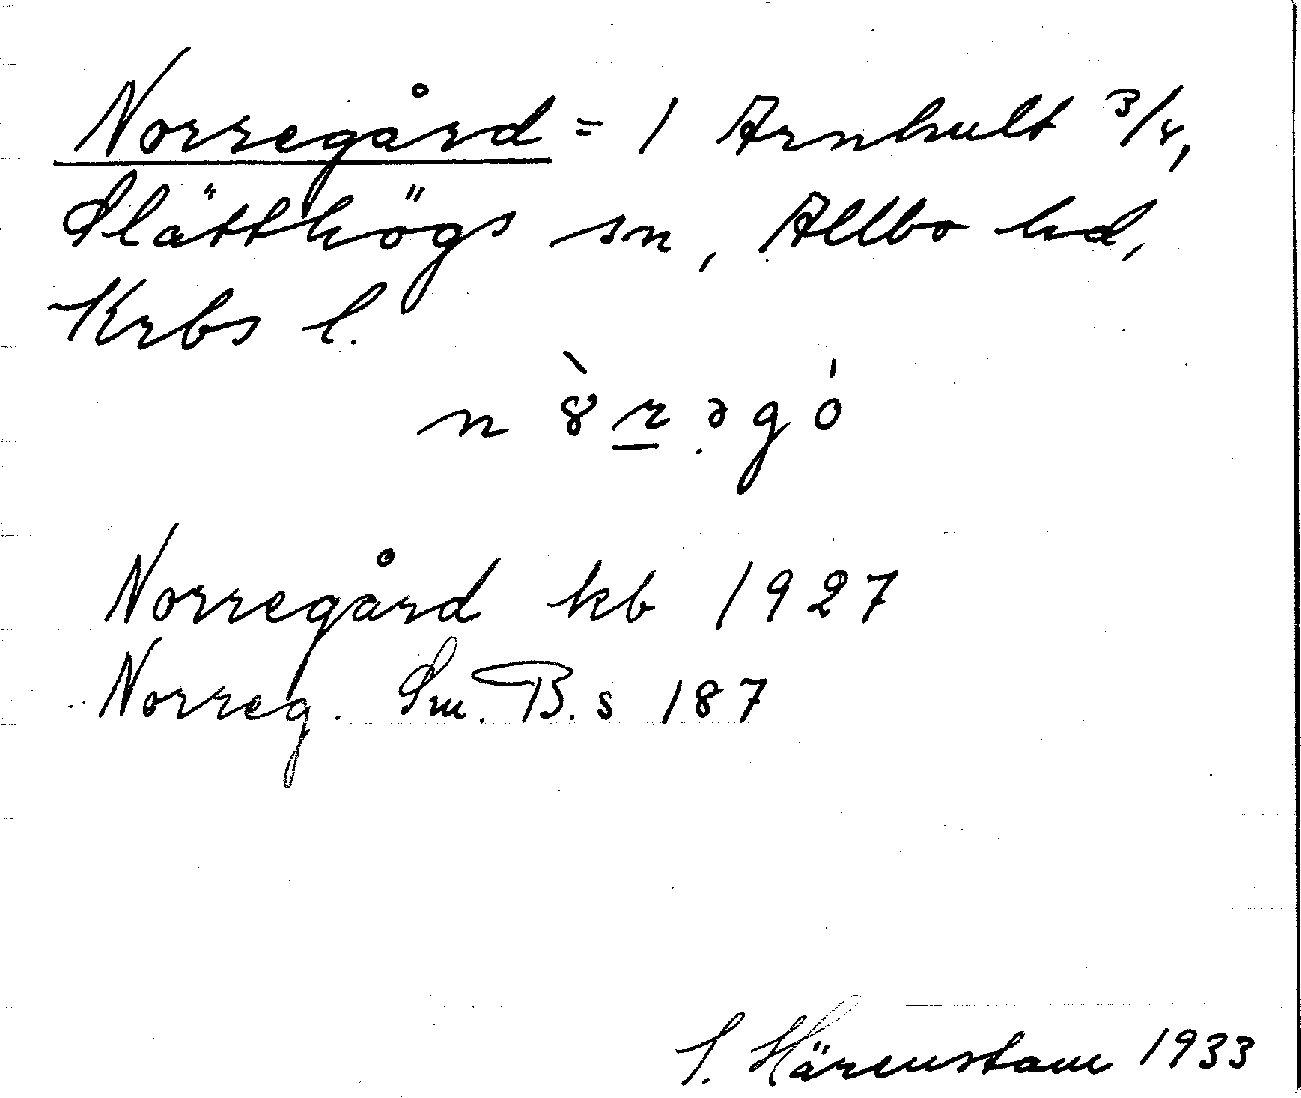 Norregård = 1 Arnhult 3/4,
Slätthögs sn, Allbo hd,
Krbs l.
n ȣ̀ r̲ ə g ó
Norregård kb 1927
Norreg. Sm. B. s 187
S. Härenstam 1933